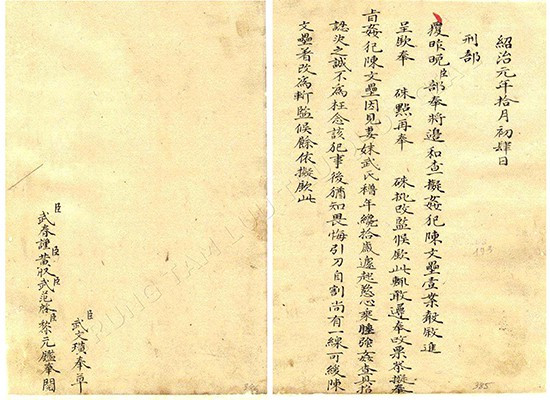 紹治元年拾月初肆日
刑部
覆昨晚臣部奉將邊和查擬姦犯陳文壘壹案敬敘進
呈欽奉 硃點再奉 硃批改監候欽此輒敢遵奉改票恭擬奉
旨姦犯陳文壘因見妻妹武氏穡年纔拾歲遽起慾心乘醉強姦查其招
認決之誠不為枉念該犯事後猶知畏悔引刀自割尚有一線可緩陳
文壘著改為斬監候餘依擬欽此
385
臣武文璜奉草
臣武春謹臣黃收臣武范啓臣黎元鑑奉閱